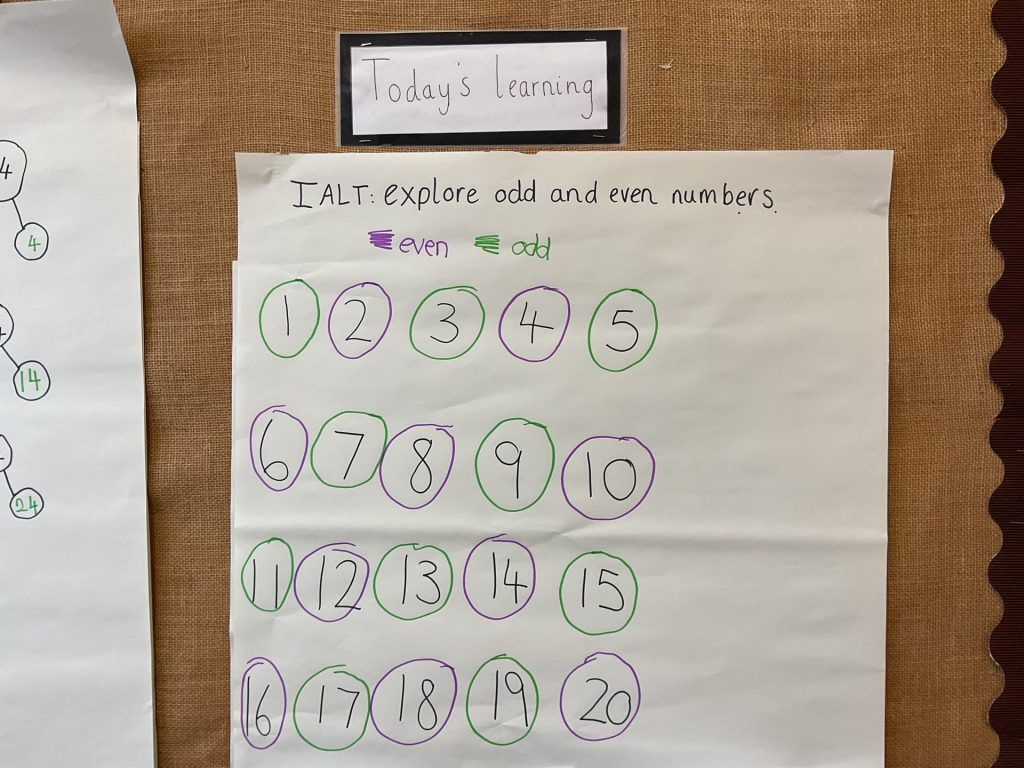 Today's learning
IALT: explore odd and even numbers.
even odd
1 2 3 4 5
6 7 8 9 10
11 12 13 14 15
16 17 18 19 20
4
4
14
24